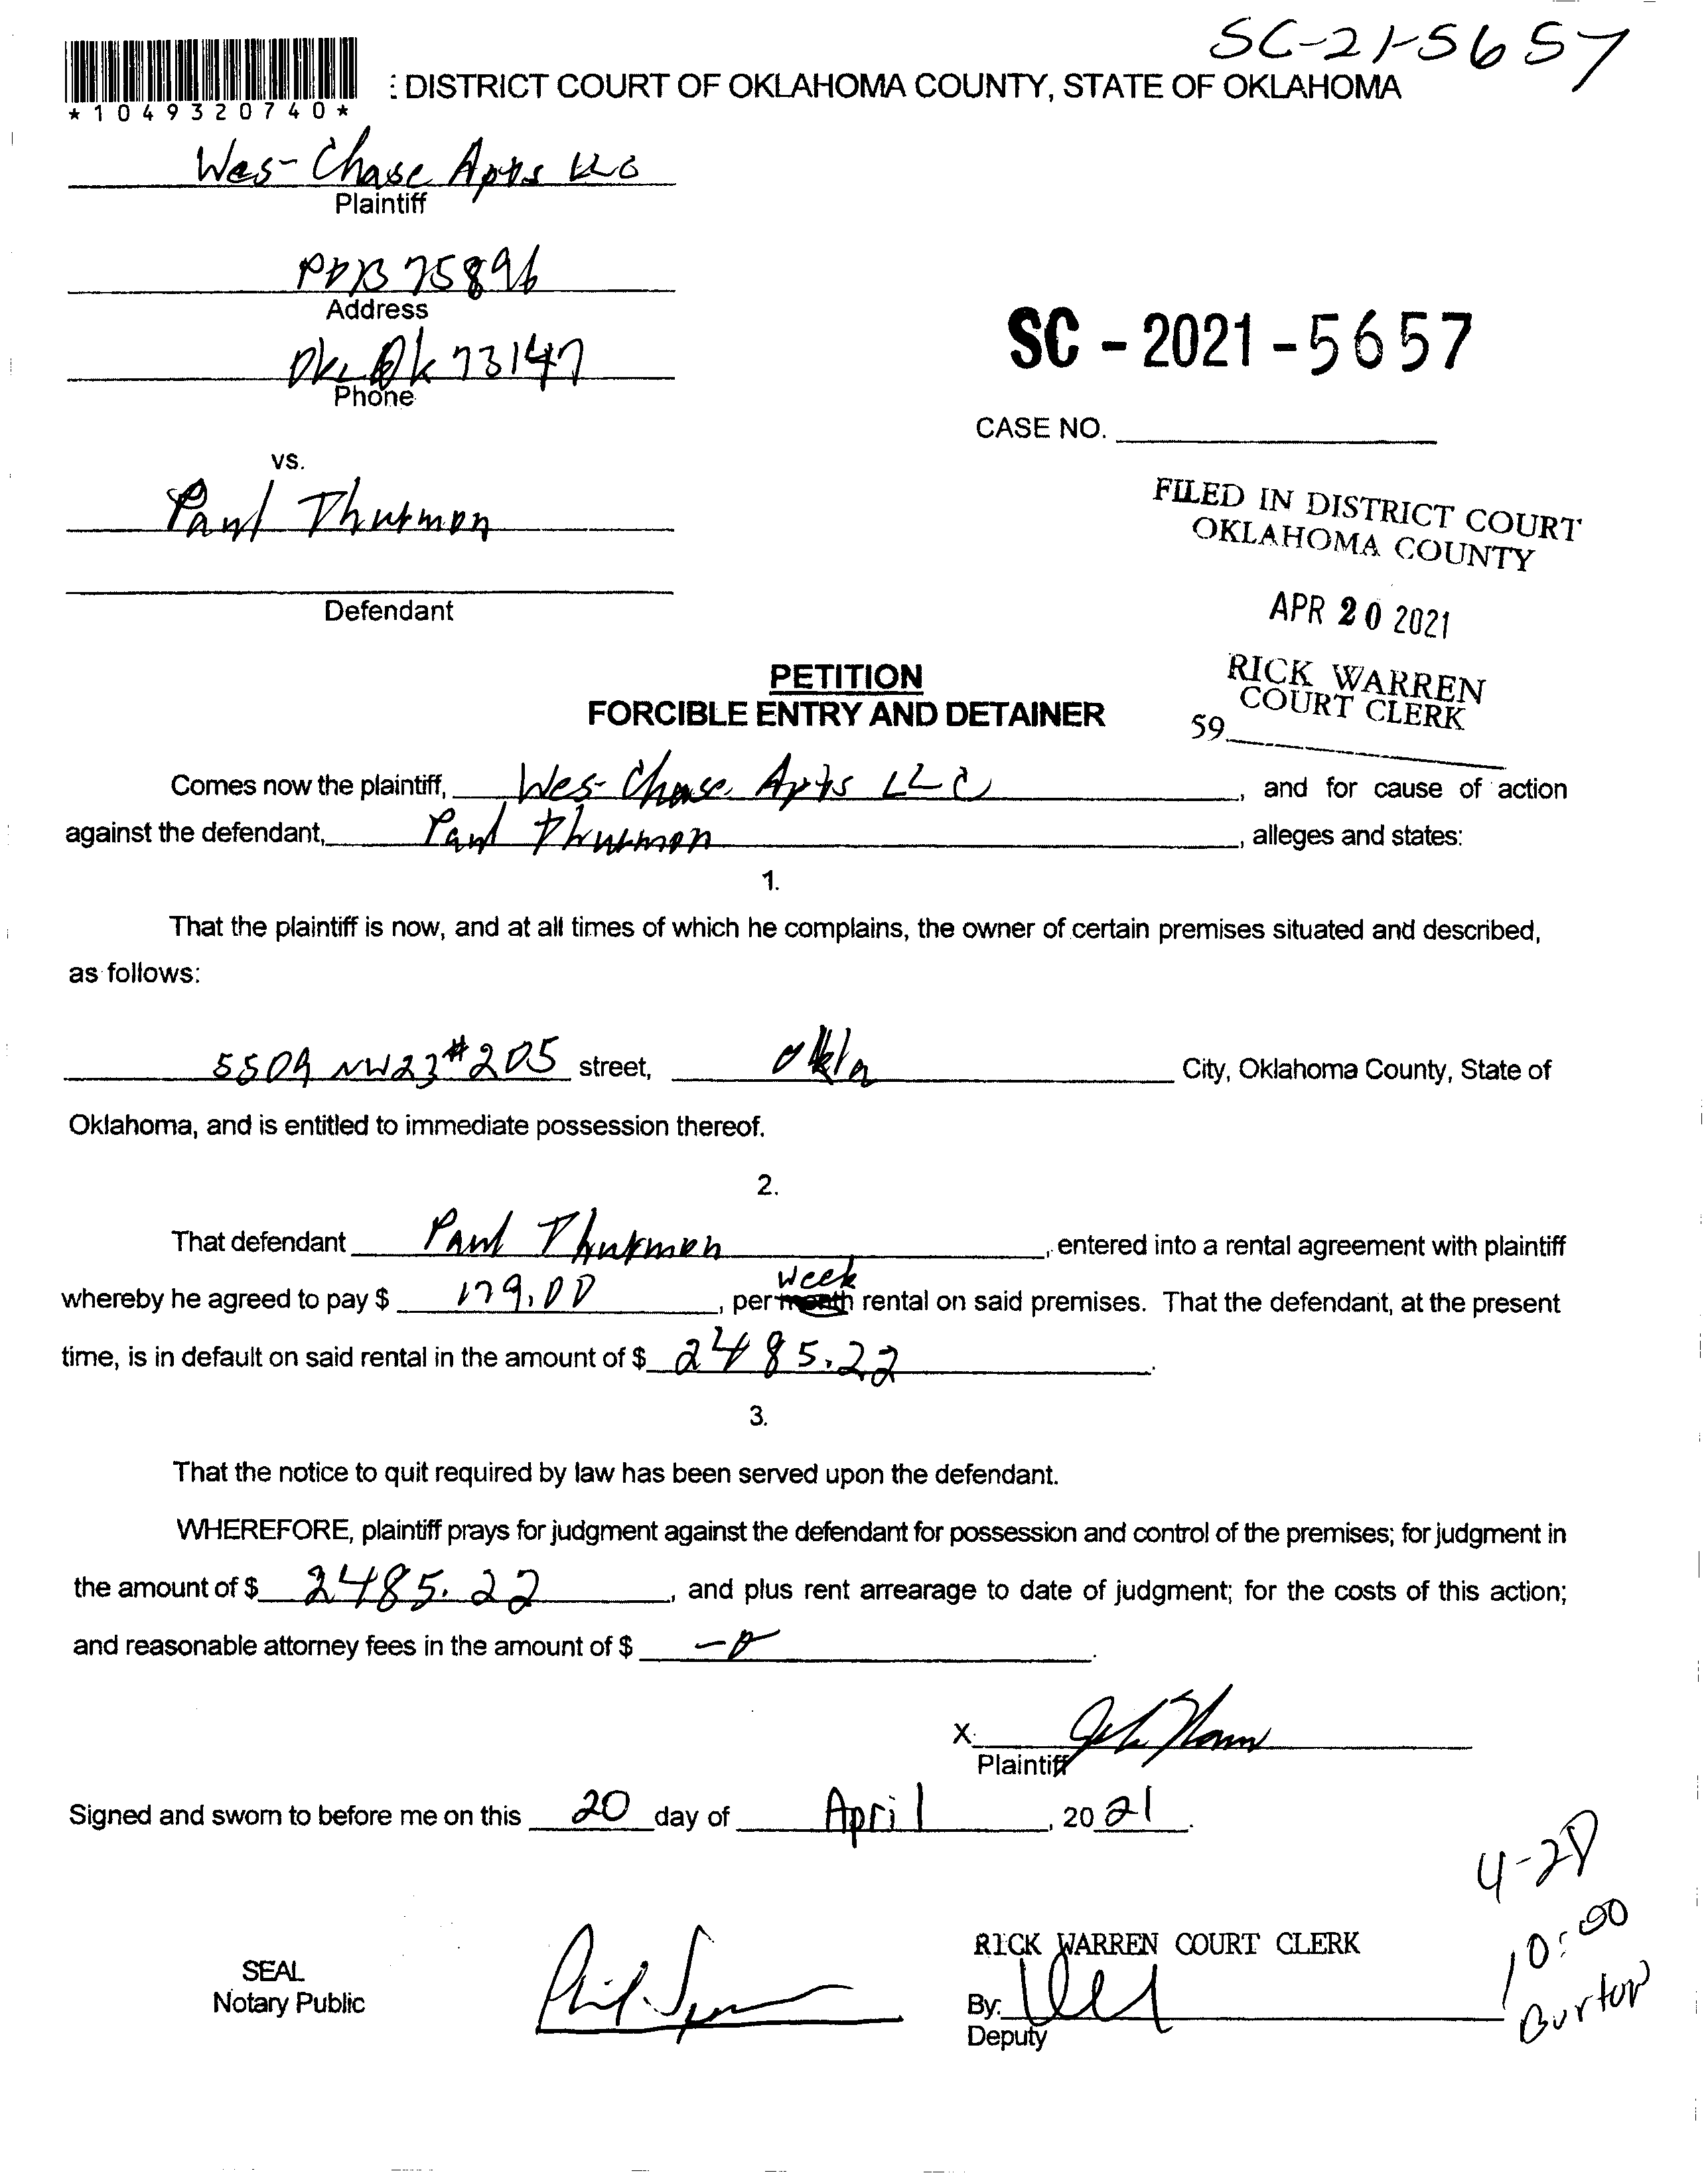 SC-21-5657
*1049320740*
: DISTRICT COURT OF OKLAHOMA COUNTY, STATE OF OKLAHOMA
Wes-Chase Apts LLC
Plaintiff
POB 75896
Address
Ok 73147
Phone
SC - 2021 - 5657
CASE NO.
vs.
Paul Thurmon
Defendant
FILED IN DISTRICT COURT
OKLAHOMA COUNTY
APR 20 2021
RICK WARREN
COURT CLERK
59
PETITION
FORCIBLE ENTRY AND DETAINER
Comes now the plaintiff, Wes-Chase Apts LLC, and for cause of action
against the defendant, Paul Thurmon, alleges and states:
1.
That the plaintiff is now, and at all times of which he complains, the owner of certain premises situated and described,
as follows:
5509 NW23 #205 street, Okla City, Oklahoma County, State of
Oklahoma, and is entitled to immediate possession thereof.
2.
That defendant Paul Thurmon, entered into a rental agreement with plaintiff
week
whereby he agreed to pay $ 179.00, per month rental on said premises. That the defendant, at the present
time, is in default on said rental in the amount of $ 2485.22.
3.
That the notice to quit required by law has been served upon the defendant.
WHEREFORE, plaintiff prays for judgment against the defendant for possession and control of the premises; for judgment in
the amount of $ 2485.22, and plus rent arrearage to date of judgment; for the costs of this action;
and reasonable attorney fees in the amount of $ -0.
X
Plaintiff
Signed and sworn to before me on this 20 day of April, 2021.
4-20
10:00
Burton
SEAL
Notary Public
RICK WARREN COURT CLERK
By:
Deputy